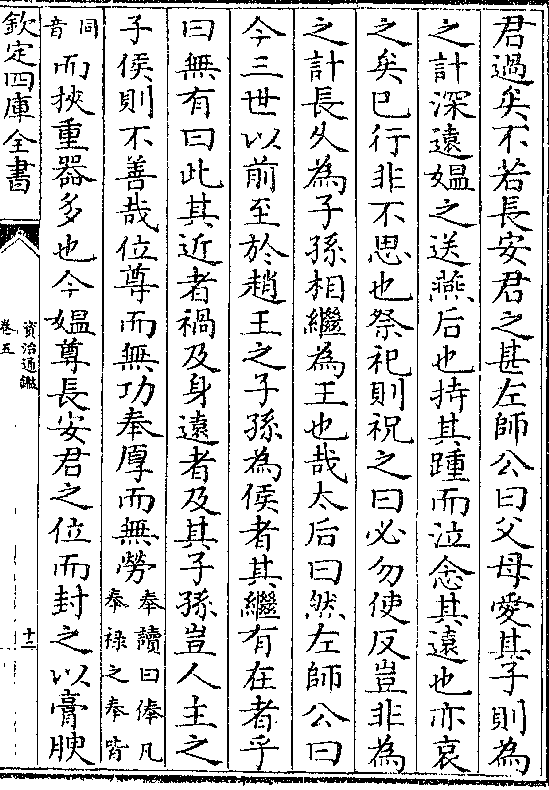 君過矣不若長安君之甚左師公曰父母愛其子則為
之計深遠媪之送燕后也持其踵而泣念其遠也亦哀
之矣已行非不思也祭祀則祝之曰必勿使反豈非為
之計長久為子孫相繼為王也哉太后曰然左師公曰
今三世以前至於趙王之子孫為侯者其繼有在者乎
曰無有曰此其近者禍及身遠者及其子孫豈人主之
子侯則不善哉位尊而無功奉厚而無勞奉讀曰俸凡奉祿之奉皆
同音而挾重器多也今媪尊長安君之位而封之以膏腴
欽定四庫全書
資治通鑑
卷五
十二